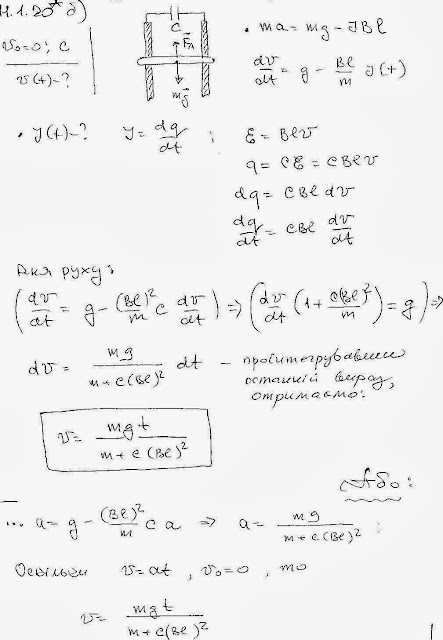 11.1.20* б)
v₀=0; C
v(t)-?
C
F⃗A
mg⃗
• ma = mg - JBl
dv/dt = g - Bl/m J(t)
• J(t)-? J = dq/dt ; ℰ = Blv
q = Cℰ = CBlv
dq = CBl dv
dq/dt = CBl dv/dt
Для руху:
(dv/dt = g - (Bl)²/m C dv/dt) ⇒ (dv/dt (1 + C(Bl)²/m) = g) ⇒
dv = mg/(m + C(Bl)²) dt - проінтегрувавши
останній вираз,
отримаємо:
v = mgt/(m + C(Bl)²)
Або:
... a = g - (Bl)²/m C a ⇒ a = mg/(m + C(Bl)²) ;
Оскільки v = at , v₀=0 , то
v = mgt/(m + C(Bl)²)